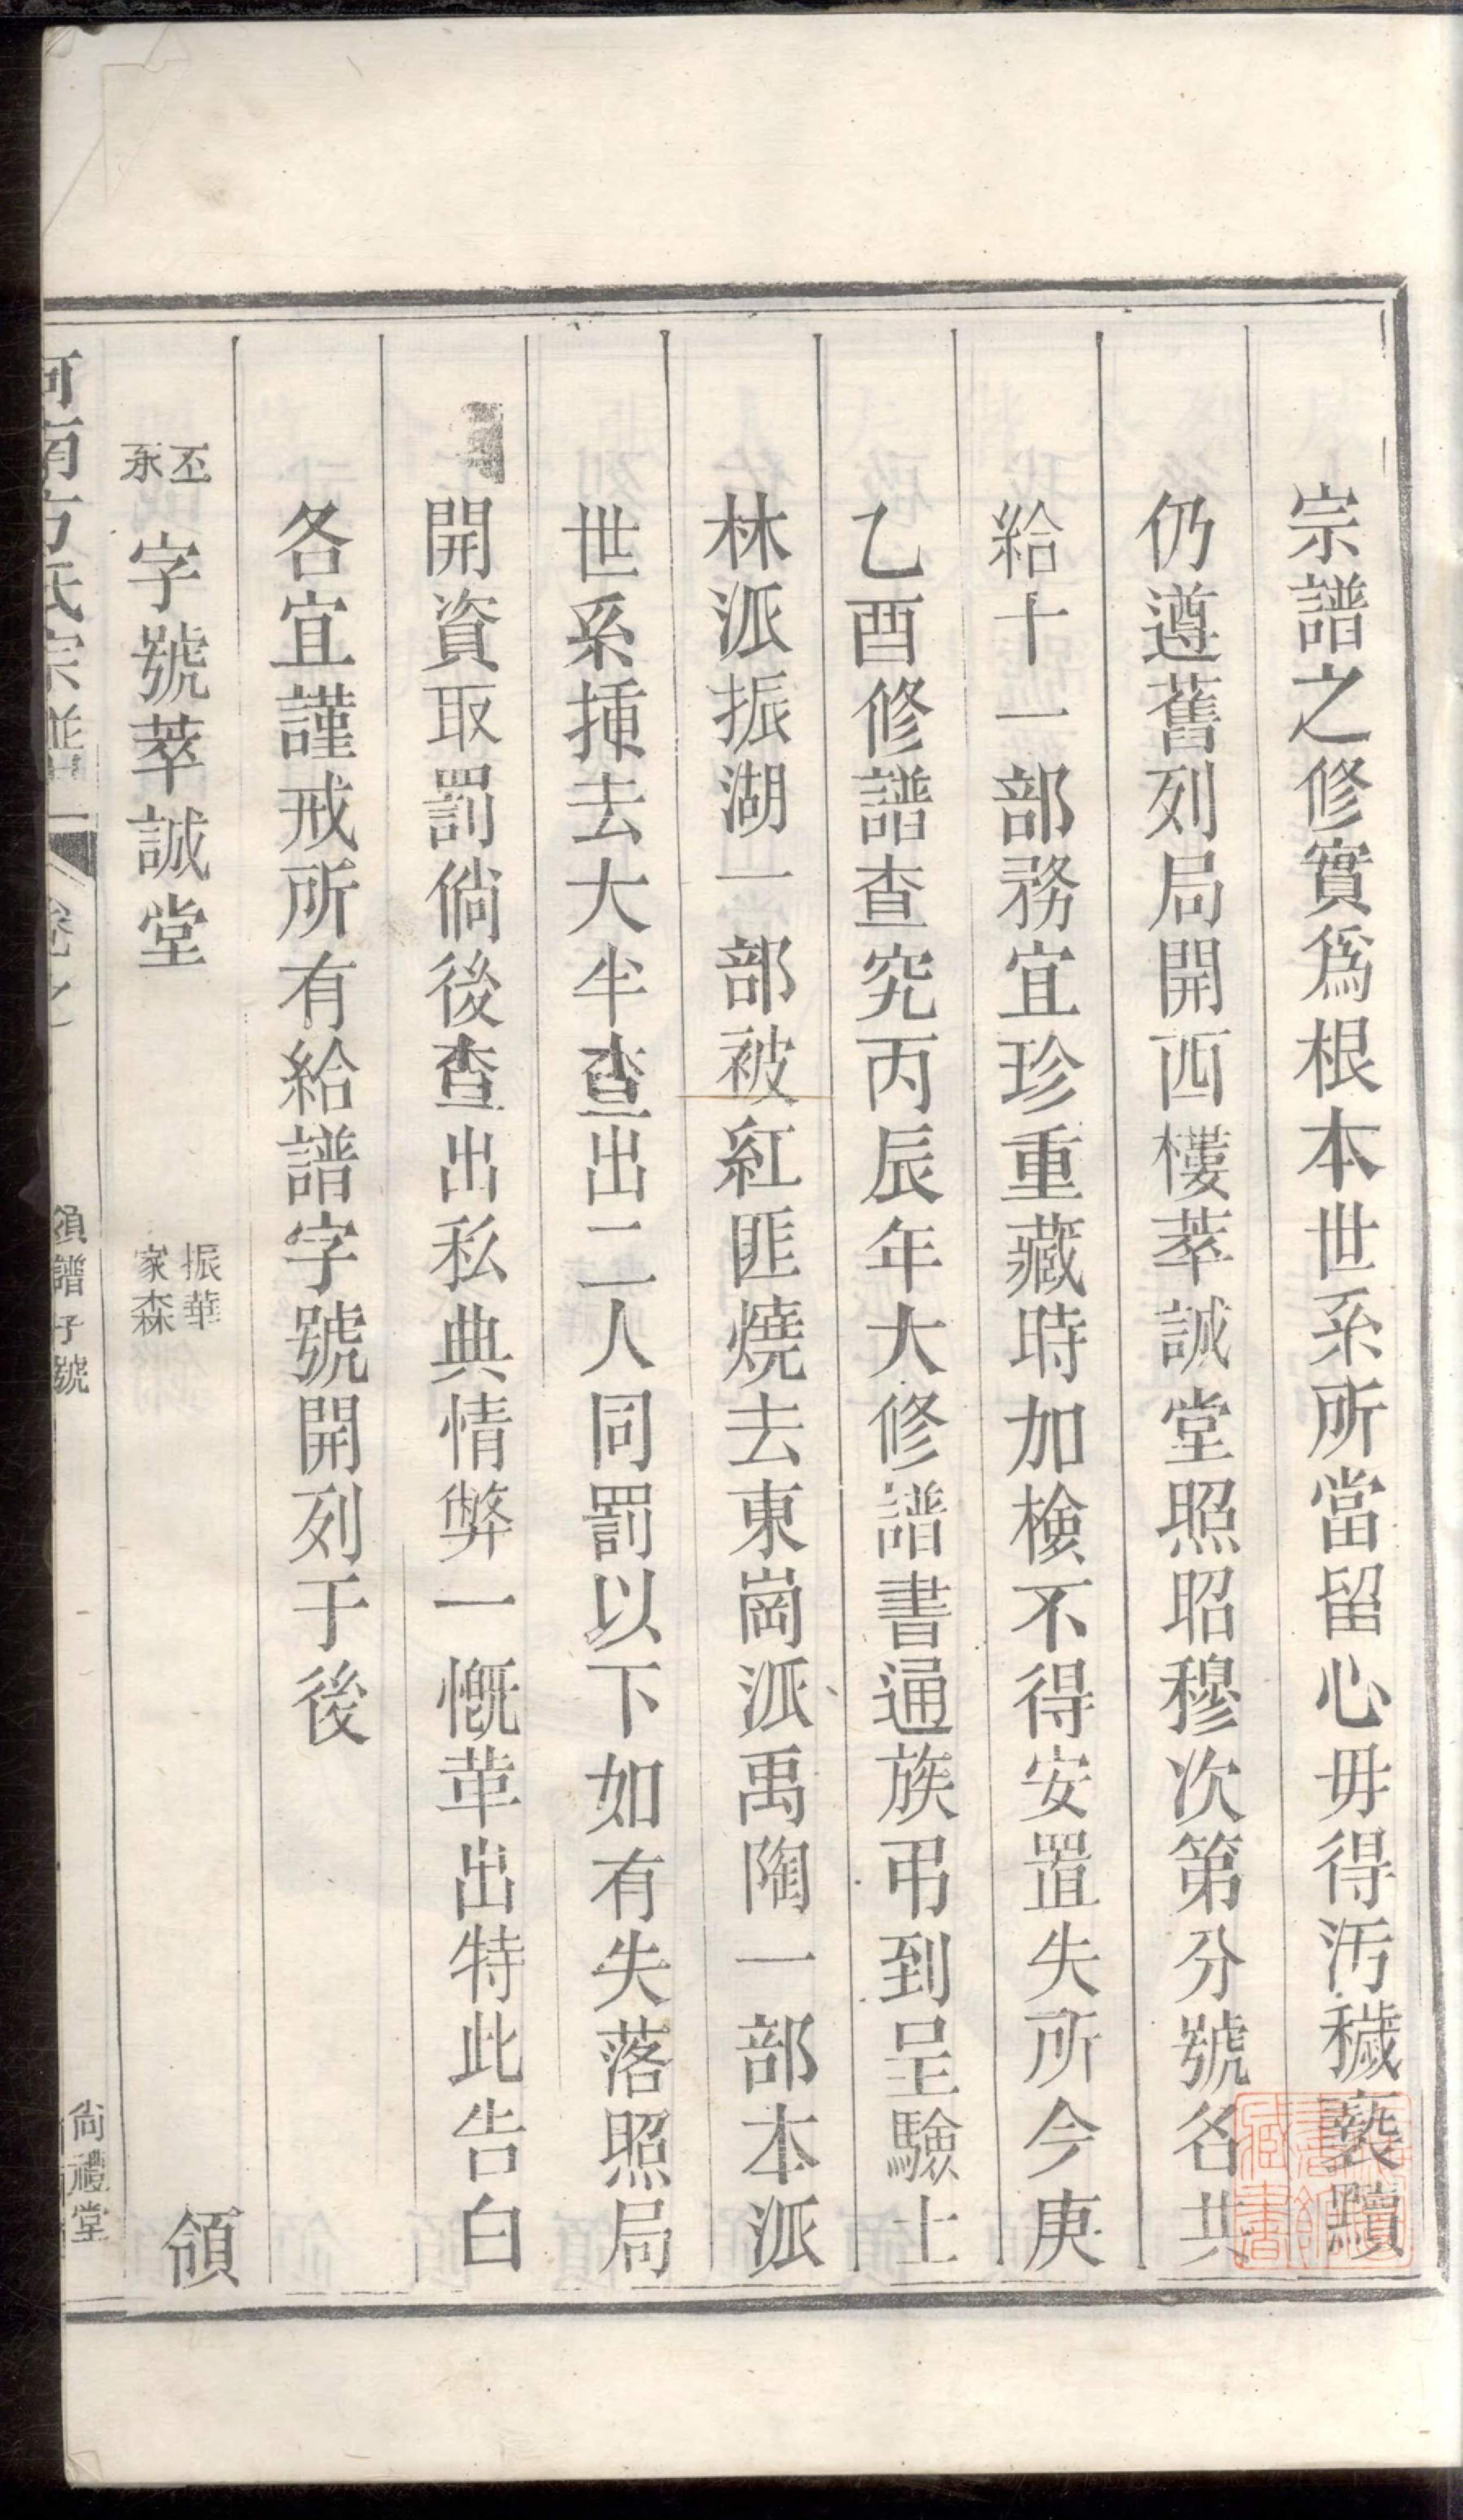 宗譜之修實爲根本世系所當留心毋得污穢褻黷
仍遵舊列局開西樓萃誠堂照昭穆次第分號名共
給十一部務宜珍重藏時加檢不得安置失所今庚
乙酉修譜查究丙辰年大修譜書通族弔到呈驗上
林派振湖一部被紅匪燒去東崗派禹陶一部本派
世系揷去大半查出二人同罰以下如有失落照局
開資取罰倘後查出私典情弊一慨革出特此告白
各宜謹戒所有給譜字號開列于後
丕
永
字號萃誠堂
振華
家森
領
河南方氏宗譜
卷之一
領譜字號
尙禮堂